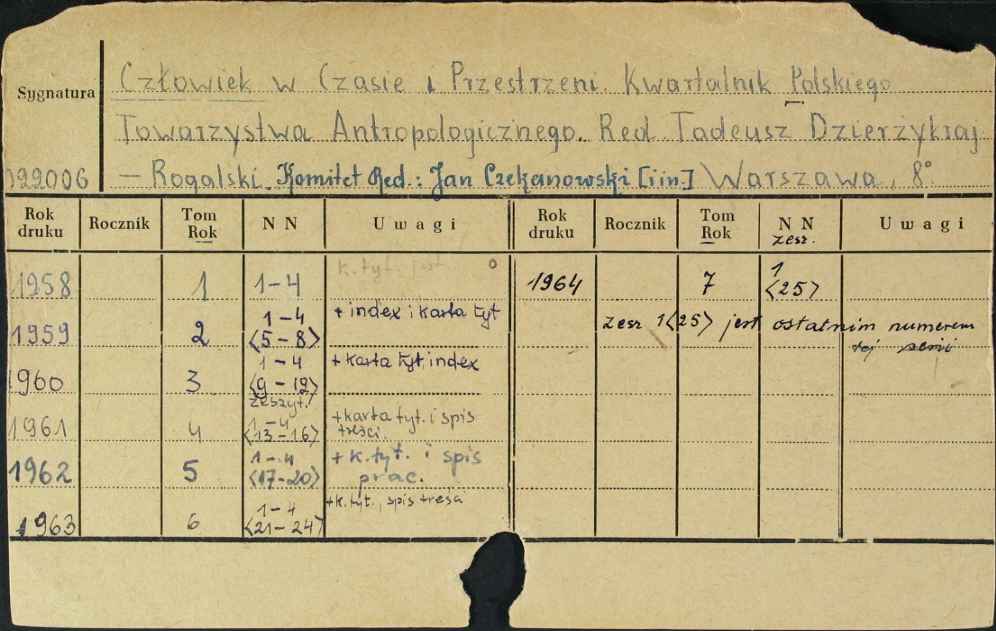 Człowiek w Czasie i Przestrzeni. Kwartalnik Polskiego
Sygnatura
Towarzystwa Antropologicznego. Red. Tadeusz Dzierżykraj
022006 — Rogalski. Komitet Red.: Jan Czekanowski [i in.] Warszawa, 8°
Rok druku Rocznik Tom Rok N N Uwagi Rok druku Rocznik Tom Rok N N zesz. Uwagi
1958 1 1-4 k. tyt. jest 1964 7 1 <25>
1959 2 1-4 <5-8> + index i karta tyt zesz 1<25> jest ostatnim numerem tej serii
1960 3 1-4 <9-12> zeszyt. + karta tyt. index
1961 4 1-4 <13-16> + karta tyt. i spis treści.
1962 5 1-4 <17-20> + k. tyt. i spis prac.
1963 6 1-4 <21-24> + k. tyt., spis treści